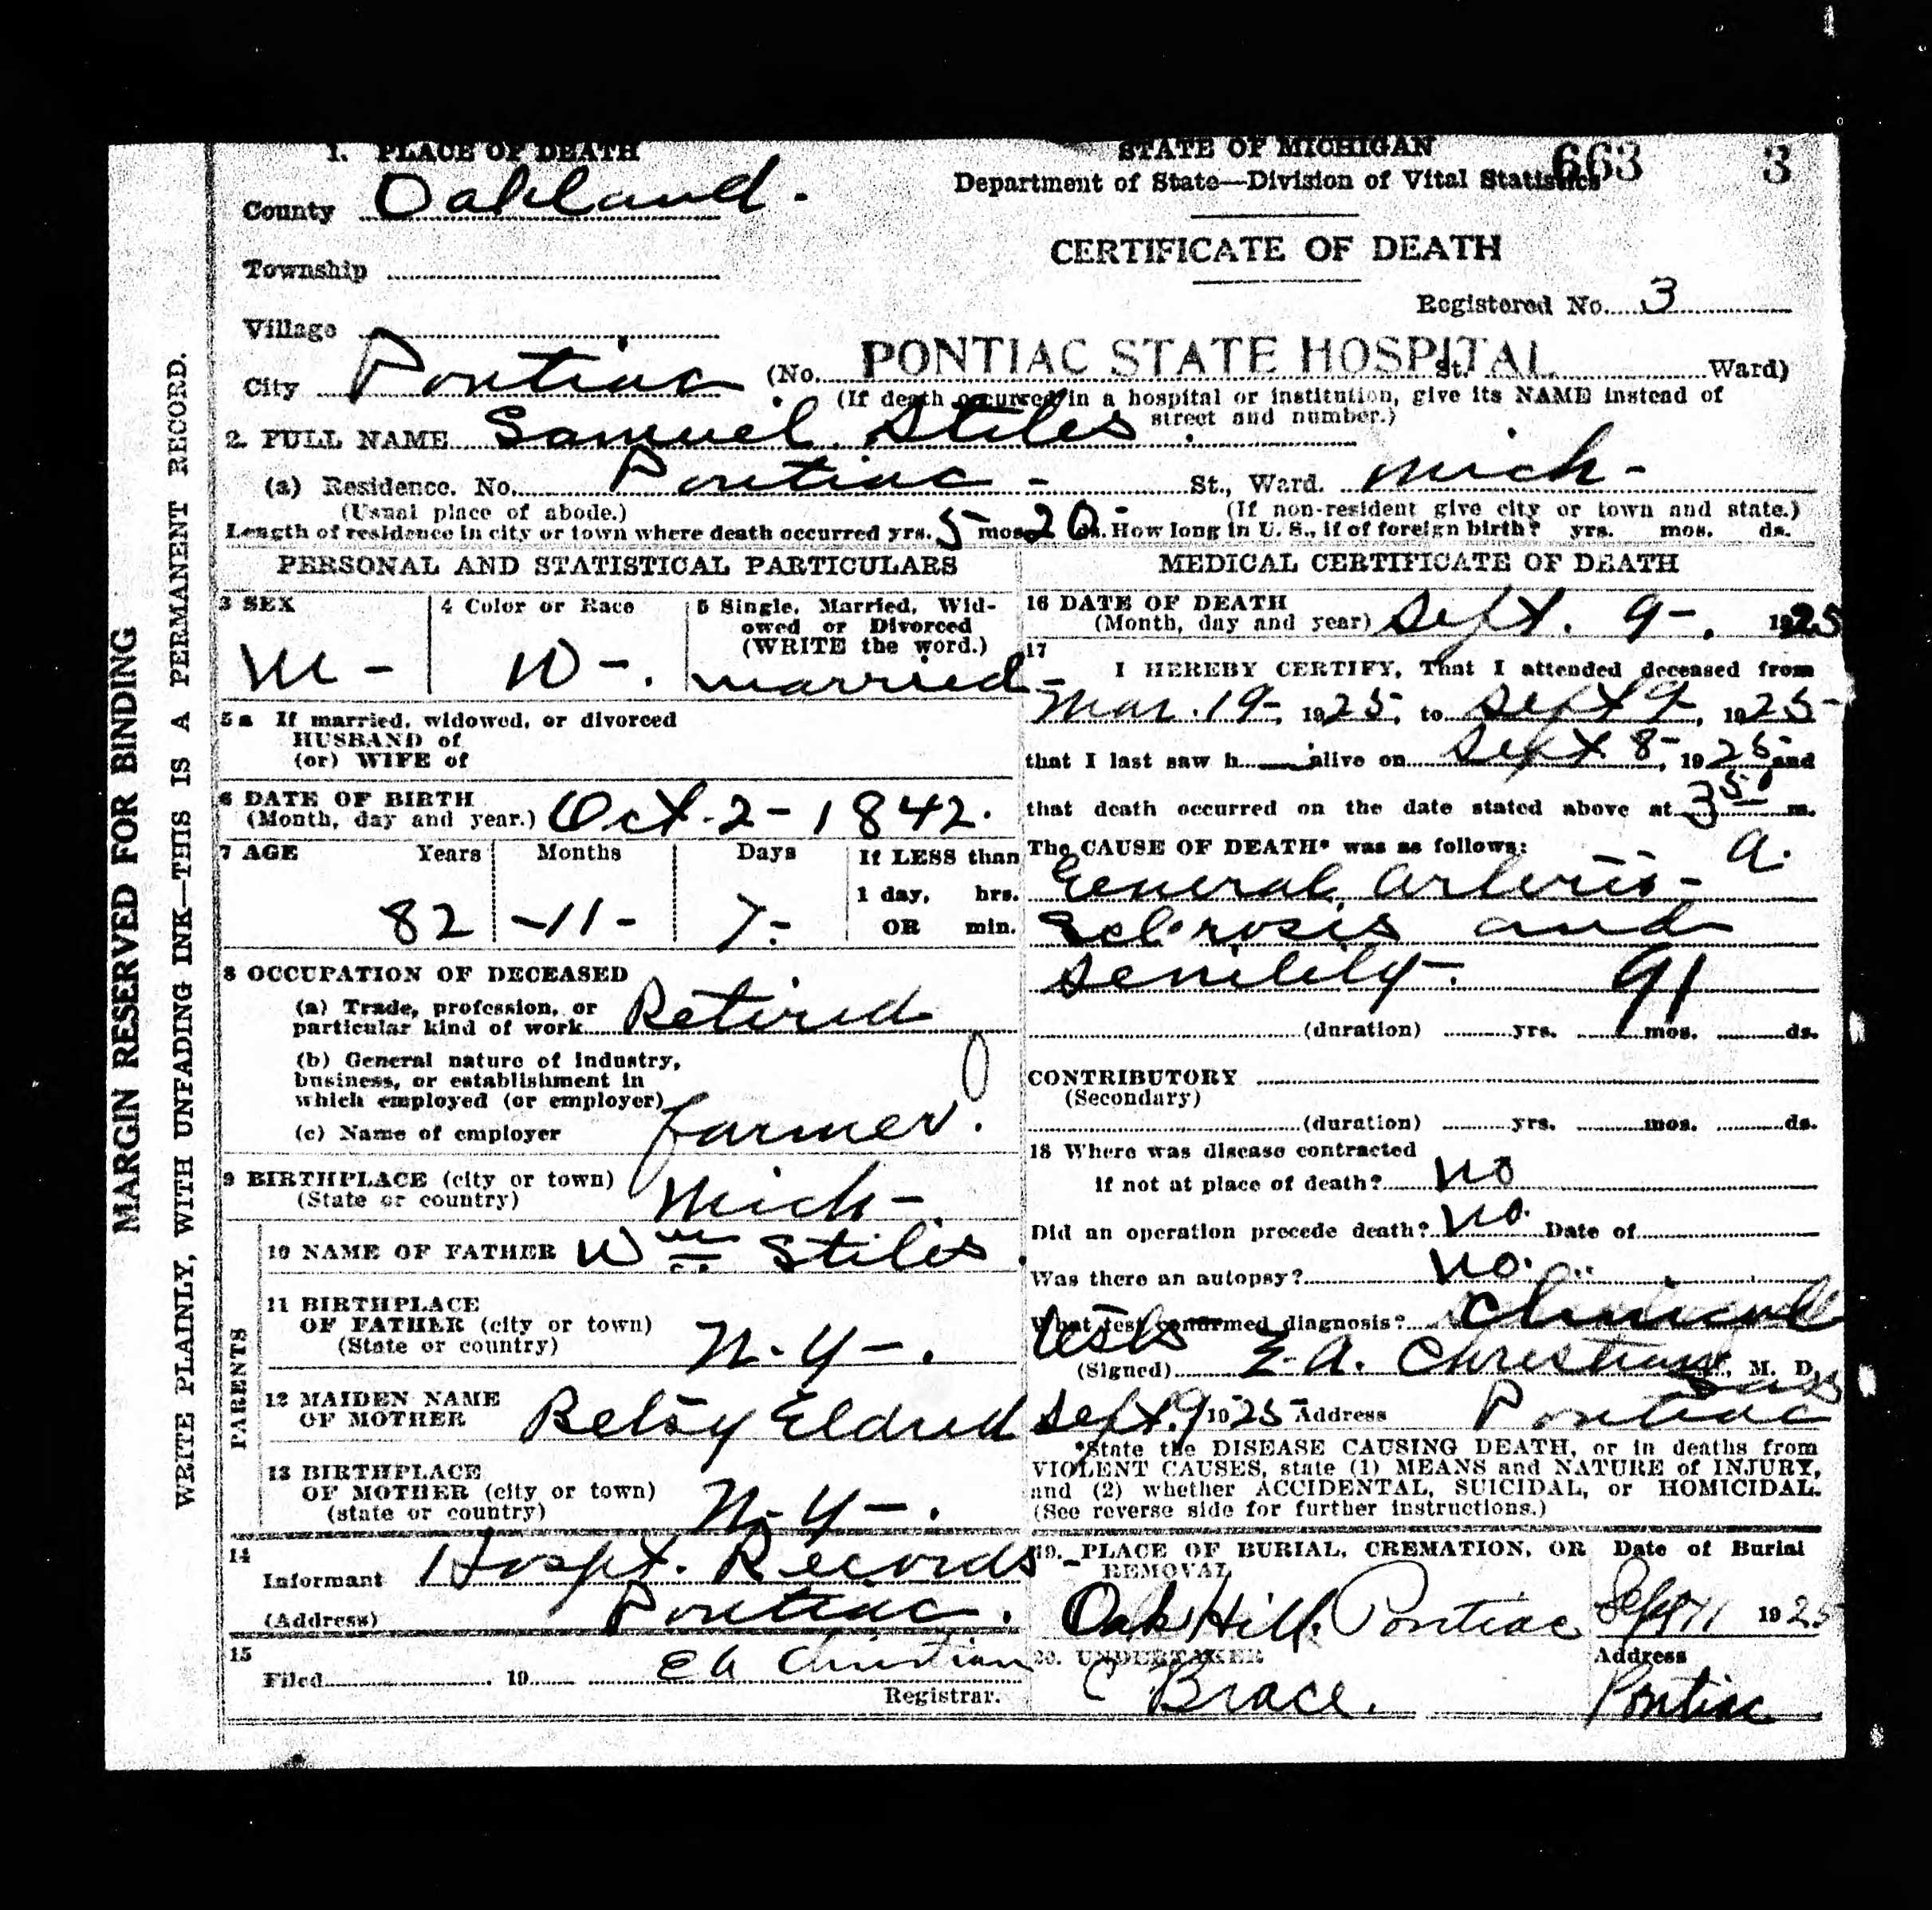 MARGIN RESERVED FOR BINDING
WRITE PLAINLY, WITH UNFADING INK—THIS IS A PERMANENT RECORD.
1. PLACE OF DEATH
County Oakland.
Township
Village
City Pontiac (No. PONTIAC STATE HOSPITAL St. Ward)
(If death occurred in a hospital or institution, give its NAME instead of
street and number.)
STATE OF MICHIGAN
Department of State—Division of Vital Statistics
663 3
CERTIFICATE OF DEATH
Registered No. 3
2. FULL NAME Samuel Stiles
(a) Residence. No. Pontiac - St., Ward. Mich-
(Usual place of abode.) (If non-resident give city or town and state.)
Length of residence in city or town where death occurred yrs. 5 mos. 20 ds. How long in U. S., if of foreign birth? yrs. mos. ds.
PERSONAL AND STATISTICAL PARTICULARS
3 SEX
M -
4 Color or Race
W -.
5 Single, Married, Wid-
owed or Divorced
(WRITE the word.)
married -
5a If married, widowed, or divorced
HUSBAND of
(or) WIFE of
6 DATE OF BIRTH
(Month, day and year.) Oct. 2 - 1842.
7 AGE Years Months Days If LESS than
1 day, hrs.
82 -11- 7- OR min.
8 OCCUPATION OF DECEASED
(a) Trade, profession, or
particular kind of work Retired
(b) General nature of industry,
business, or establishment in
which employed (or employer)
(c) Name of employer farmer.
9 BIRTHPLACE (city or town)
(State or country) Mich-
PARENTS
10 NAME OF FATHER Wm Stiles.
11 BIRTHPLACE
OF FATHER (city or town)
(State or country) N-Y-.
12 MAIDEN NAME
OF MOTHER Betsy Eldred
13 BIRTHPLACE
OF MOTHER (city or town)
(state or country) N-Y-.
14
Informant Hospt. Records
(Address) Pontiac.
15
Filed 19 E A Christian
Registrar.
MEDICAL CERTIFICATE OF DEATH
16 DATE OF DEATH
(Month, day and year) Sept. 9-, 1925
17
I HEREBY CERTIFY, That I attended deceased from
Mar. 19-, 1925, to Sept 9-, 1925-
that I last saw h alive on Sept 8-, 1925 and
that death occurred on the date stated above at 3 50 m.
The CAUSE OF DEATH* was as follows: a.
General Arterio-
Sclerosis and
Senility-. 91
(duration) yrs. mos. ds.
CONTRIBUTORY
(Secondary)
(duration) yrs. mos. ds.
18 Where was disease contracted
if not at place of death? no
Did an operation precede death? no. Date of
Was there an autopsy? no.
What test confirmed diagnosis? Clinical
tests
(Signed) E. A. Christian, M. D.
Sept. 9 1925- Address Pontiac
*State the DISEASE CAUSING DEATH, or in deaths from
VIOLENT CAUSES, state (1) MEANS and NATURE of INJURY,
and (2) whether ACCIDENTAL, SUICIDAL, or HOMICIDAL.
(See reverse side for further instructions.)
19. PLACE OF BURIAL, CREMATION, OR Date of Burial
REMOVAL
Oak Hill. Pontiac Sept 11 1925
20. UNDERTAKER Address
C Brace. Pontiac